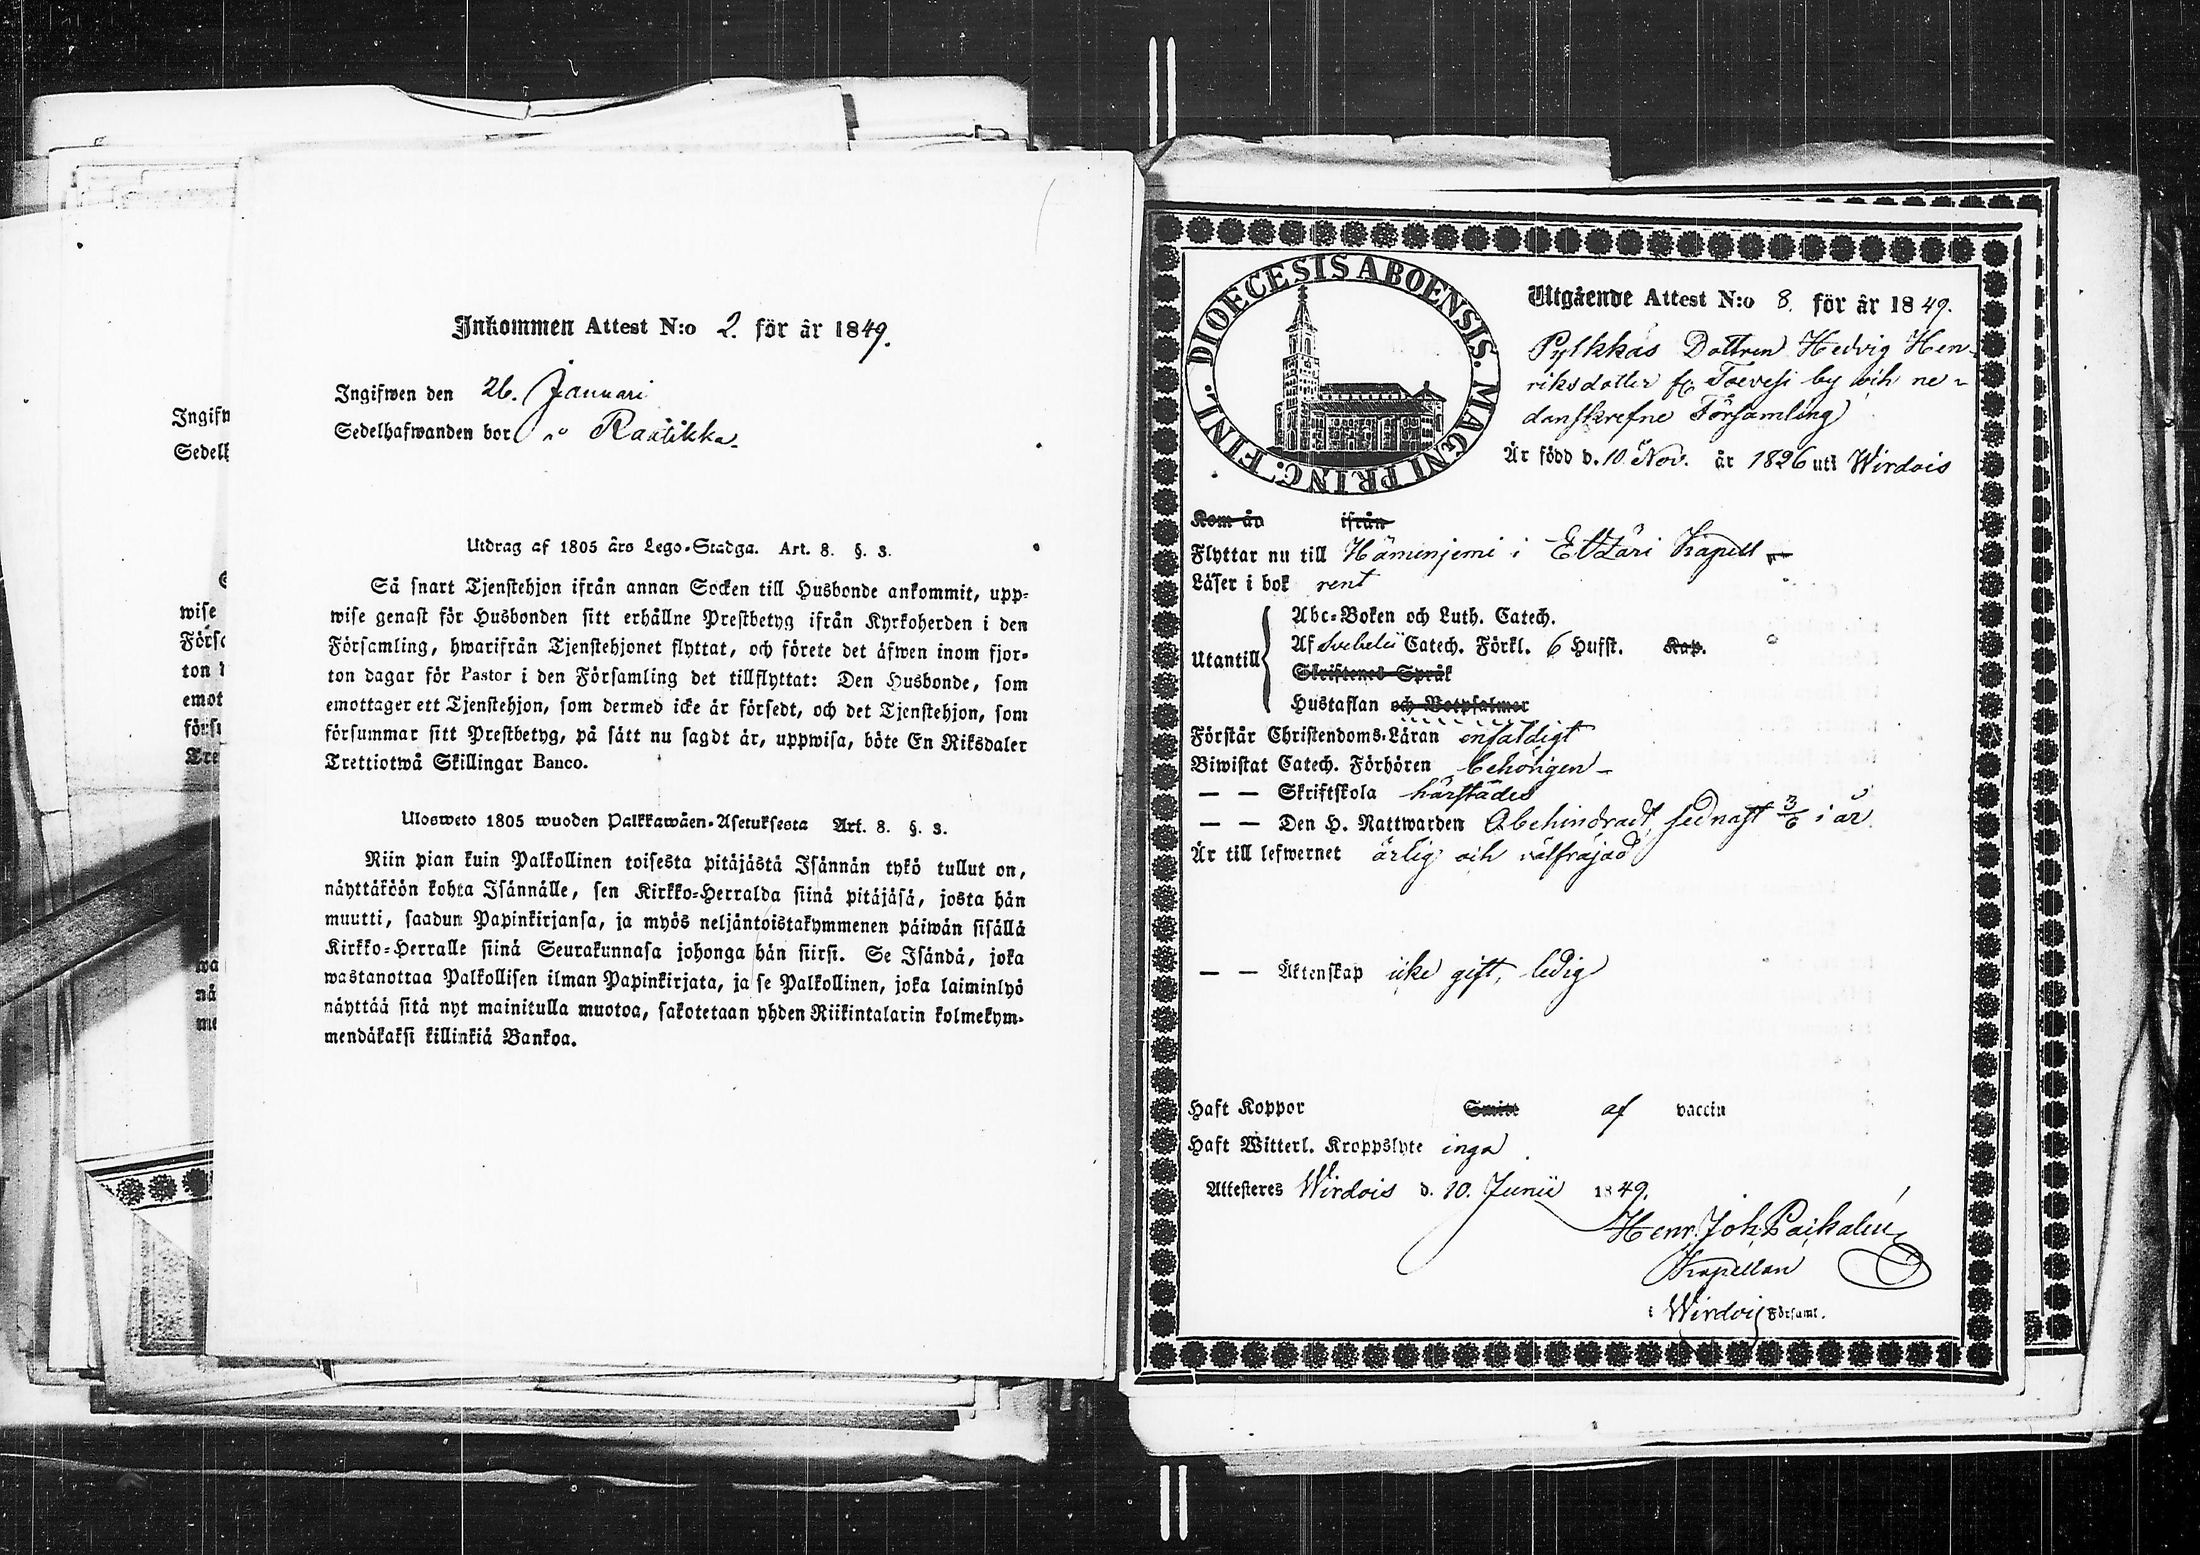 Inkommen Attest N:o 2. för år 1849.
Ingifwen den 26. Januari
Sedelhafwanden bor Raatikka
Utdrag af 1805 års Lego-Stadga. Art. 8. §. 3.
Så snart Tjenstehjon ifrån annan Socken till Husbonde ankommit, upp-
wise genast för Husbonden sitt erhållne Prestbetyg ifrån Kyrkoherden i den
Församling, hwarifrån Tjenstehjonet flyttat, och förete det äfwen inom fjor-
ton dagar för Pastor i den Församling det tillflyttat: Den Husbonde, som
emottager ett Tjenstehjon, som dermed icke är försedt, och det Tjenstehjon, som
försummar sitt Prestbetyg, på sätt nu sagdt är, uppwisa, böte En Riksdaler
Trettiotwå Skillingar Banco.
Ulosweto 1805 wuoden Palkkawäen-Asetuksesta Art. 8. §. 3.
Niin pian kuin Palkollinen toisesta pitäjästä Isännän tykö tullut on,
näyttäköön kohta Isännälle, sen Kirkko-Herralda siinä pitäjäsä, josta hän
muutti, saadun Papinkirjansa, ja myös neljäntoistakymmenen päiwän sisällä
Kirkko-Herralle siinä Seurakunnasa johonga hän siirsi. Se Isändä, joka
wastanottaa Palkollisen ilman Papinkirjata, ja se Palkollinen, joka laiminlyö
näyttää sitä nyt mainitulla muotoa, sakotetaan yhden Riikintalarin kolmekym-
mendäkaksi killinkiä Bankoa.
DIOECESIS ABOENSIS. MAGNI PRINC: FINL.
Utgående Attest N:o 8. för år 1849.
Pylkkäs Dottren Hedvig Hen-
riksdotter fr Toevesi by och ne-
danskrefne Församling
Är född d. 10 Nov. år 1826 uti Wirdois
Kom år ifrån
Flyttar nu till i Etzäri Kapell
Läser i bok rent
Abc-Boken och Luth. Catech.
Utantill Af Svebelii Catech. Förkl. 6 Hufst. Kap.
Skriftenes Språk
Hustaflan och Botpsalmer
Förstår Christendoms-Läran enfaldigt
Biwistat Catech. Förhören behörigen
— — Skriftskola härstädes
— — Den H. Nattwarden Obehindradt, sednast 3/6 i år.
Är till lefwernet ärlig och välfräjad
— — Äktenskap icke gift, ledig
Haft Koppor Smitt af vaccin
Haft Witterl. Kroppslyte inga
Attesteres Wirdois d. 10. Junii 1849.
Henr. Joh.
Kapellan
i Wirdois Församl.